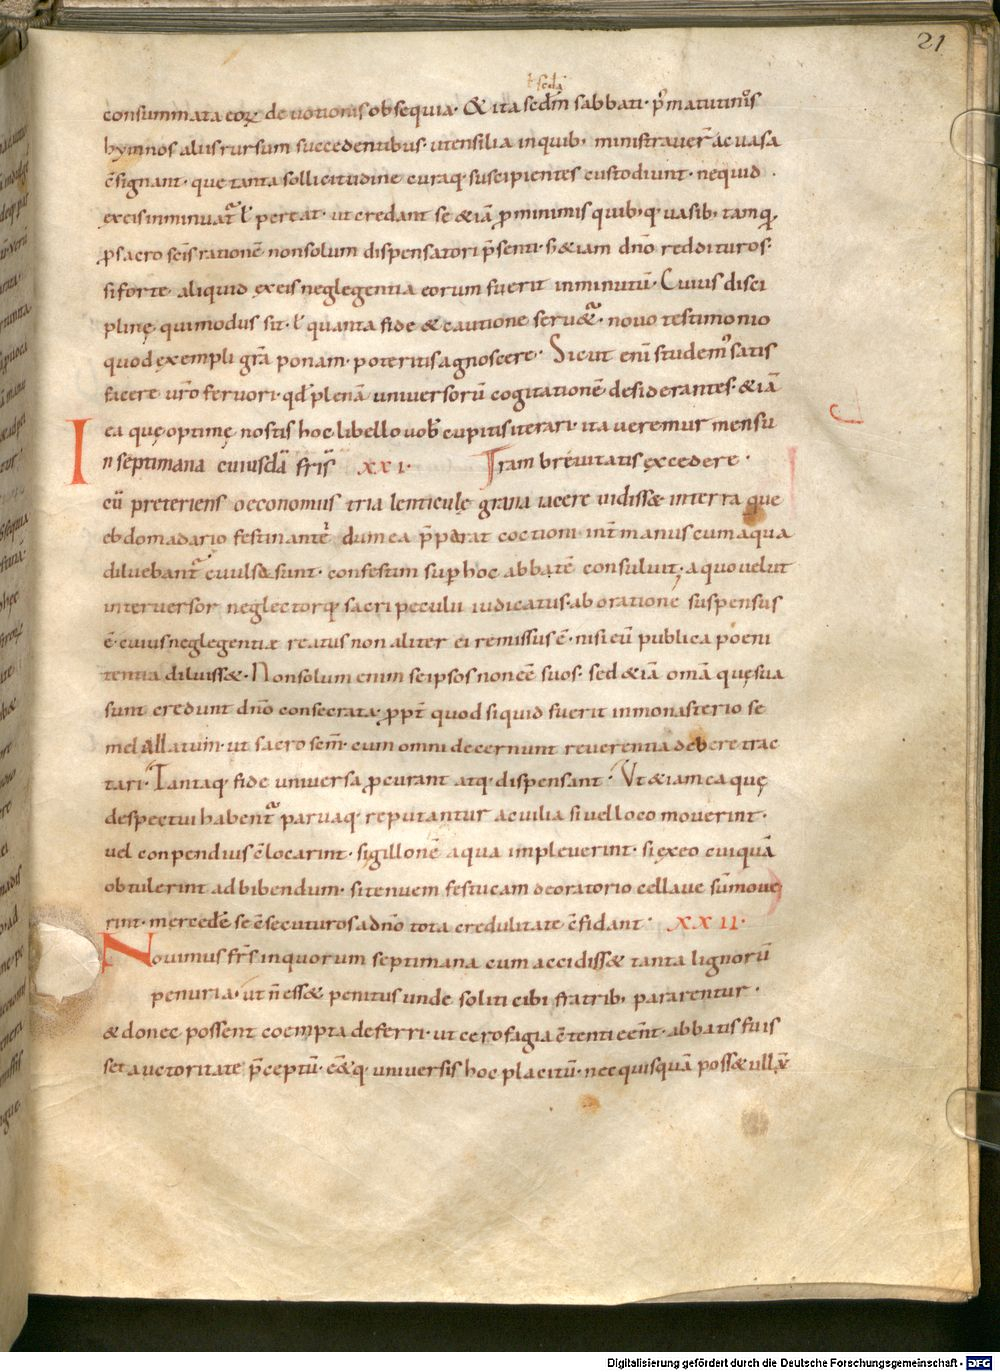 21
ł scdā
consummata eoꝝ deuotionis obsequia· & ita sedm̄ sabbati· p̄ matutinos
hymnos aliis rursum succedentibus· utensilia in quib; ministrauer̄ ac uasa
c̄signant· que tanta sollicitudine curaq; suscipientes custodiunt· nequid
ęx eis inminuat᷑ ł pereat· ut credant se & iā ꝓ minimis quib;q; uasib; tamq̄
ꝓ sacro sc̄is rationē non solum dispensatori p̄senti· s; & iam dn̄o reddituros·
si forte aliquid ęx eis neglegentia eorum fuerit inminutū· Cuius disci
plinę qui modus sit· ł quanta fide & cautione seru&᷑· nouo testimonio
quod ęxempli gr̄a ponam· poteritis agnoscere· Sicut enī studem᷒ satis
facere ur̄o feruori· qđ plenā uniuersorū cogitationē desiderantes· & iā
ea quę optime nostis hoc libello uob̄ cupitis iterari· ita ueremur mensu
In septimana cuiusdā fr̄is XXI· ram breuitatis ęxcedere·
cū preteriens oeconomus tria lenticulę grana iacere uidiss& in terra que
ebdomadario festinante dum ea p̄parat coctioni· int̄ manus cum aqua
diluebant᷑ euulsa sunt· confestim sup hoc abbatē consuluit· a quo uelut
interuersor neglectorq; sacri peculii iudicatus· ab oratione suspensus
ē· cuius neglegentiæ reatus non aliter ei remissus ē· nisi eū publica poeni
tentia diluiss&· Non solum enim se ipsos non eē suos· sed & iā om̄a quę sua
sunt credunt dn̄o consecrata· ꝓpt̄ quod siquid fuerit in monasterio se
mel allatum· ut sacro sem̄· cum omni decernunt reuerentia debere trac
tari· Tantaq; fide uniuersa ꝓcurant atq; dispensant· Ut & iam ea quę
despectui habent᷑ paruaq; reputantur ac uilia si uel loco mouerint·
uel conpendius c̄locarint· si gillonē aqua impleuerint· si ęx eo cuiquā
obtulerint ad bibendum· si tenuem festucam de oratorio cellaue sūmoue
rint· mercedē se c̄secuturos a dn̄o tota credulitate c̄fidant· XXII·
Nouimus fr̄s in quorum septimana cum accidiss& tanta lignorū
penuria· ut n̄ ess& penitus unde soliti cibi fratrib; pararentur·
& donec possent coempta deferri· ut cerofagia c̄tenti eēnt· abbatis fuis
set auctoritate p̄ceptū· eēq; uniuersis hoc placitū· nec quisquā poss& ullā
Digitalisierung gefördert durch die Deutsche Forschungsgemeinschaft - DFG